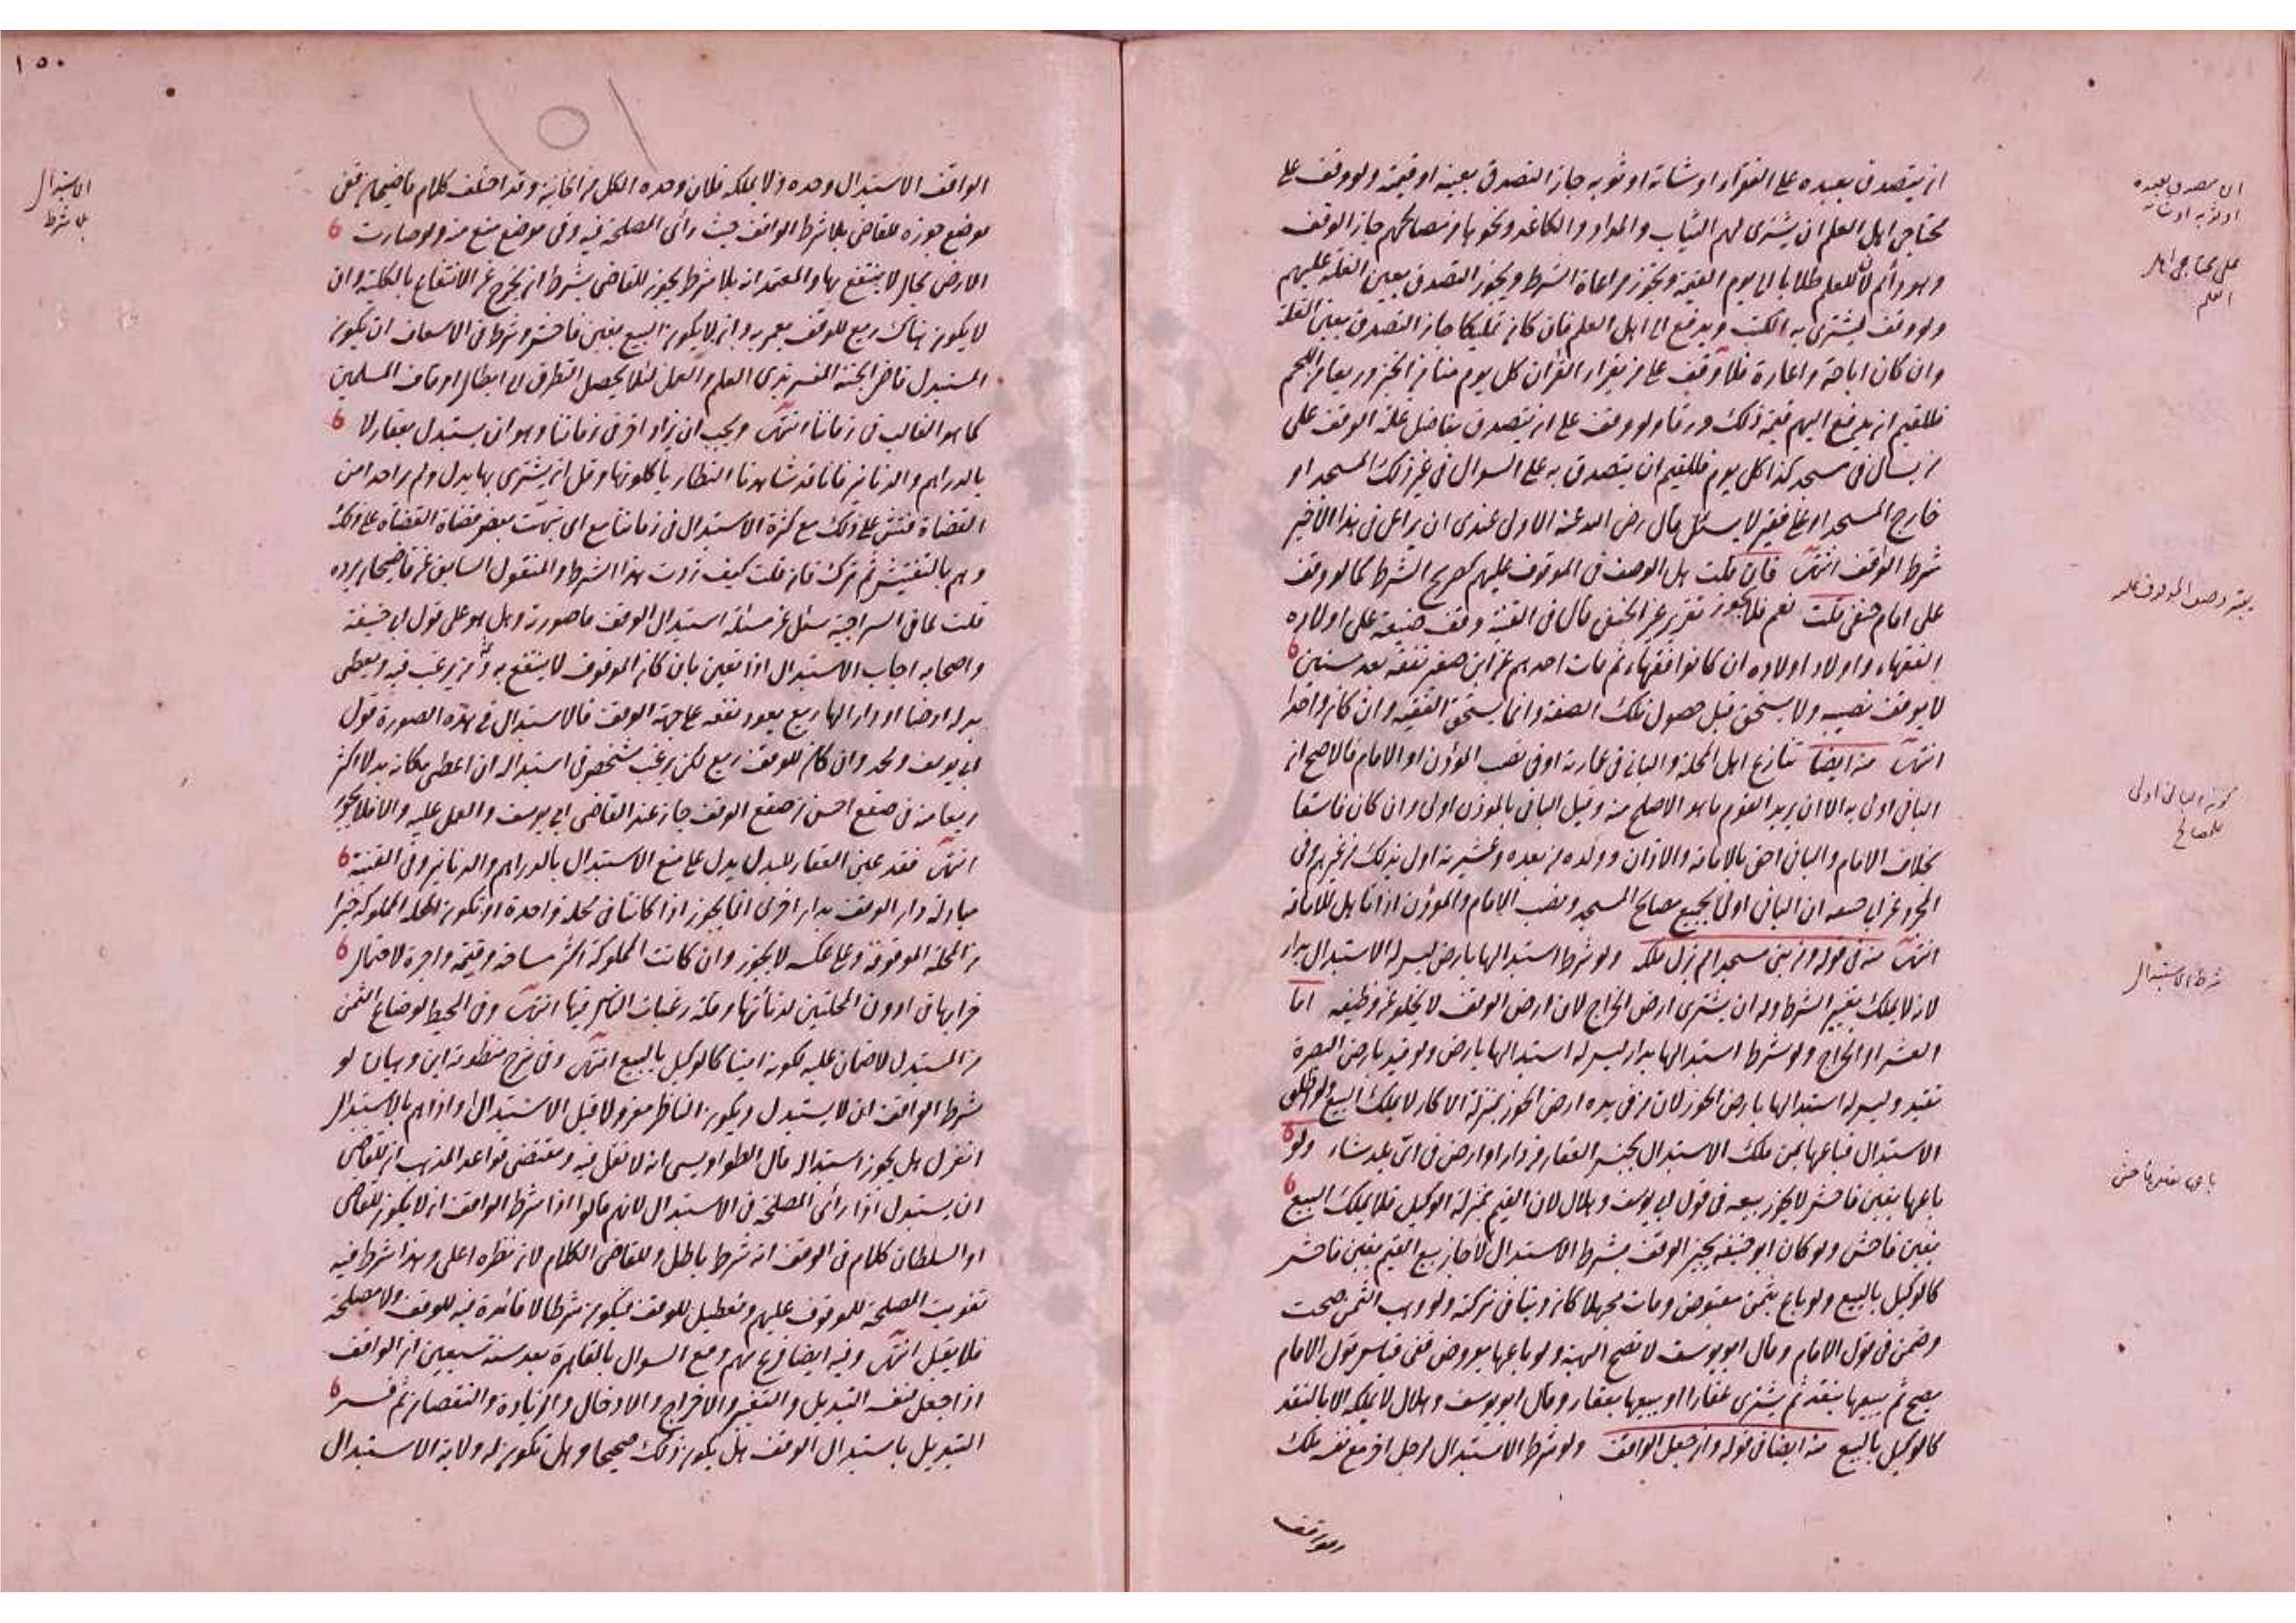 ان يتصدق بعبده على الفقراء او شاته او ثوبه جاز التصدق بعينه او قيمته ولو وقف على
محتاجي اهل العلم ان يشترى لهم الثياب والمداد والكاغد ونحوها من مصالحهم جاز الوقف
وهو دائم لان للعلم طلابا الى يوم القيمة ويجوز مراعاة الشرط ويجوز التصدق بعين الغلة عليهم
ولو وقف ليشترى به الكتب ويدفع الى اهل العلم فان كان تمليكا جاز التصدق بعين الغلة
وان كان اباحة واعارة فلا وقف على من يقرأ القرآن كل يوم منا من الخبز وربعا من اللحم
فللقيم ان يدفع اليهم قيمة ذلك ورقا ولو وقف على ان يتصدق بفاضل غلة الوقف على
من يسأل في مسجد كذا كل يوم فللقيم ان يتصدق به على السوال في غير ذلك المسجد او
خارج المسجد او على فقير لا يسئل قال رضى الله عنه الاولى عندى ان يراعى فى هذا الاخير
شرط الواقف انتهى فان قلت هل الوصف فى الموقوف عليهم كصريح الشرط كما لو وقف
على امام حنفى قلت نعم فلا يجوز تقرير غير الحنفى قال فى القنية وقف ضيعته على اولاده
الفقهاء واولاد اولاده ان كانوا فقهاء ثم مات احدهم عن ابن صغير تفقه بعد سنين
لا يوقف نصيبه ولا يستحق قبل حصول تلك الصفة وانما يستحق الفقيه وان كان واحدا
انتهى منه ايضا تنازع اهل المحلة والبانى فى عمارته او فى نصب المؤذن او الامام فالاصح ان
البانى اولى به الا ان يريد القوم ما هو الاصلح منه وقيل البانى بالمؤذن اولى وان كان فاسقا
بخلاف الامام والبانى احق بالامامة والاذان وولده من بعده وعشيرته اولى بذلك من غيرهم وفى
المجرد عن ابى حنيفه ان البانى اولى بجميع مصالح المسجد ونصب الامام والمؤذن اذا تاهل للامامة
انتهى منه فى قوله ومن بنى مسجدا لم يزل ملكه ولو شرط استبدالها بارض ليس له الاستبدال بدار
لانه لا يملك تغيير الشرط وله ان يشترى ارض الخراج لان ارض الوقف لا يخلو عن وظيفه اما
العشر او الخراج ولو شرط استبدالها بدار ليس له استبدالها بارض ولو قيد بارض البصرة
تقيد وليس له استبدالها بارض الحوز لان من فى يده ارض الحوز بمنزلة الاكار لا يملك البيع ولو اطلق
الاستبدال فباعها بثمن ملك الاستبدال بجنس العقار من دار او ارض فى اى بلد شاء ولو
باعها بغبن فاحش لا يجوز بيعه فى قول ابى يوسف وهلال لان القيم بمنزلة الوكيل فلا يملك البيع
بغبن فاحش ولو كان ابو حنيفه يجيز الوقف بشرط الاستبدال لاجاز بيع القيم بغبن فاحش
كالوكيل بالبيع ولو باع بثمن مقبوض ومات مجهلا كان دينا فى تركته ولو وهب الثمن صحت
وضمن فى قول الامام وقال ابو يوسف لا تصح الهبة ولو باعها بعروض ففى قياس قول الامام
يصح ثم يبيعها بنقد ثم يشترى عقارا او يبيعها بعقار وقال ابو يوسف وهلال لا يملكه الا بالنقد
كالوكيل بالبيع منه ايضا فى قوله وان جعل الواقف ولو شرط الاستبدال لرجل اخر مع نفسه ملك
الواقف
ان يتصدق بعبده
او ثوبه او شاته
على محتاجى اهل
العلم
يعتبر وصف الموقوف عليه
كون البانى اولى
للمصالح
شرط الاستبدال
باعها بغبن فاحش
١٥٠
الواقف الاستبدال وحده ولا يملكه فلان وحده الكل من الخانية وقد اختلف كلام قاضيخان ففى
موضع جوزه للقاضى بلا شرط الواقف حيث رأى المصلحة فيه وفى موضع منع منه ولو صارت
الارض بحال لا ينتفع بها والمعتمد انه بلا شرط يجوز للقاضى بشرط ان يخرج عن الانتفاع بالكلية وان
لا يكون هناك ريع للوقف يعمر به وان لا يكون البيع بغبن فاحش وشرط فى الاسعاف ان يكون
المستبدل قاضى الجنة المفسر بذى العلم والعمل لئلا يحصل التطرق الى ابطال اوقاف المسلمين
كما هو الغالب فى زماننا انتهى ويجب ان يزاد اخر فى زماننا وهو ان يستبدل بعقار لا
بالدراهم والدنانير فانا قد شاهدنا النظار ياكلونها وقل ان يشترى بها بدل ولم ير احد من
القضاة فتش على ذلك مع كثرة الاستبدال فى زماننا مع انى نبهت بعض قضاة القضاه على ذلك
وهم بالتفتيش ثم ترك فان قلت كيف زدت هذا الشرط والمنقول السابق عن قاضيخان يرده
قلت لما فى السراجية سئل عن مسئلة استبدال الوقف ما صورته وهل هو على قول ابى حنيفة
واصحابه اجاب الاستبدال اذا تعين بان كان الموقوف لا ينتفع به وثم من يرغب فيه ويعطى
بدله ارضا او دارا لها ريع يعود نفعه على جهة الوقف فالاستبدال فى هذه الصورة قول
ابى يوسف ومحمد وان كان للوقف ريع لكن رغب شخص فى استبداله ان اعطى مكانه بدلا اكثر
ريعا منه فى صقع احسن من صقع الوقف جاز عند القاضى ابى يوسف والعمل عليه والا فلا يجوز
انتهى فقد عين العقار للبدل يدل على منع الاستبدال بالدراهم والدنانير وفى القنية
مبادلة دار الوقف بدار اخرى انما يجوز اذا كانتا فى محلة واحدة او تكون المحلة المملوكة خيرا
من المحلة الموقوفة وعلى عكسه لا يجوز وان كانت المملوكة اكثر مساحة وقيمة واجرة لاحتمال
خرابها فى ادون المحلتين لدنائتها وقلة رغبات الناس فيها انتهى وفى المحيط لو ضاع الثمن
من المستبدل لا ضمان عليه لكونه امينا كالوكيل بالبيع انتهى وفى شرح منظومة ابن وهبان لو
شرط الواقف ان لا يستبدل ويكون الناظر معزولا قبل الاستبدال او اذا هم بالاستبدال
انعزل هل يجوز استبداله قال الطرسوسى انه لا نقل فيه ومقتضى قواعد المذهب ان للقاضى
ان يستبدل اذا رأى المصلحة فى الاستبدال لانهم قالوا اذا شرط الواقف ان لا يكون للقاضى
او السلطان كلام فى الوقف انه شرط باطل وللقاضى الكلام لان نظره اعلى وهذا شرط فيه
تفويت المصلحة للموقوف عليهم وتعطيل للوقف فيكون شرطا لا فائدة فيه للوقف ولا مصلحة
فلا يقبل انتهى وفيه ايضا فرع مهم وقع السوال بالقاهرة بعد سنة سبعين ان الواقف
اذا جعل لنفسه التبديل والتغيير والاخراج والادخال والزيادة والنقصان ثم فسر
التبديل باستبدال الوقف هل يكون ذلك صحيحا وهل تكون له ولاية الاستبدال
الاستبدال
بلا شرط